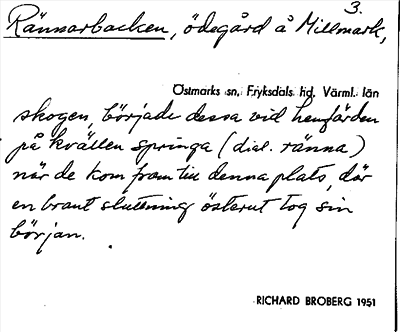 3.
Rännarbacken, ödegård å Millmark,
Östmarks sn, Fryksdals hd, Värml. län
skogen, började dessa vid hemfärden
på kvällen springa (dial. ränna)
när de kom fram till denna plats, där
en brant sluttning österut tog sin
början.
RICHARD BROBERG 1951